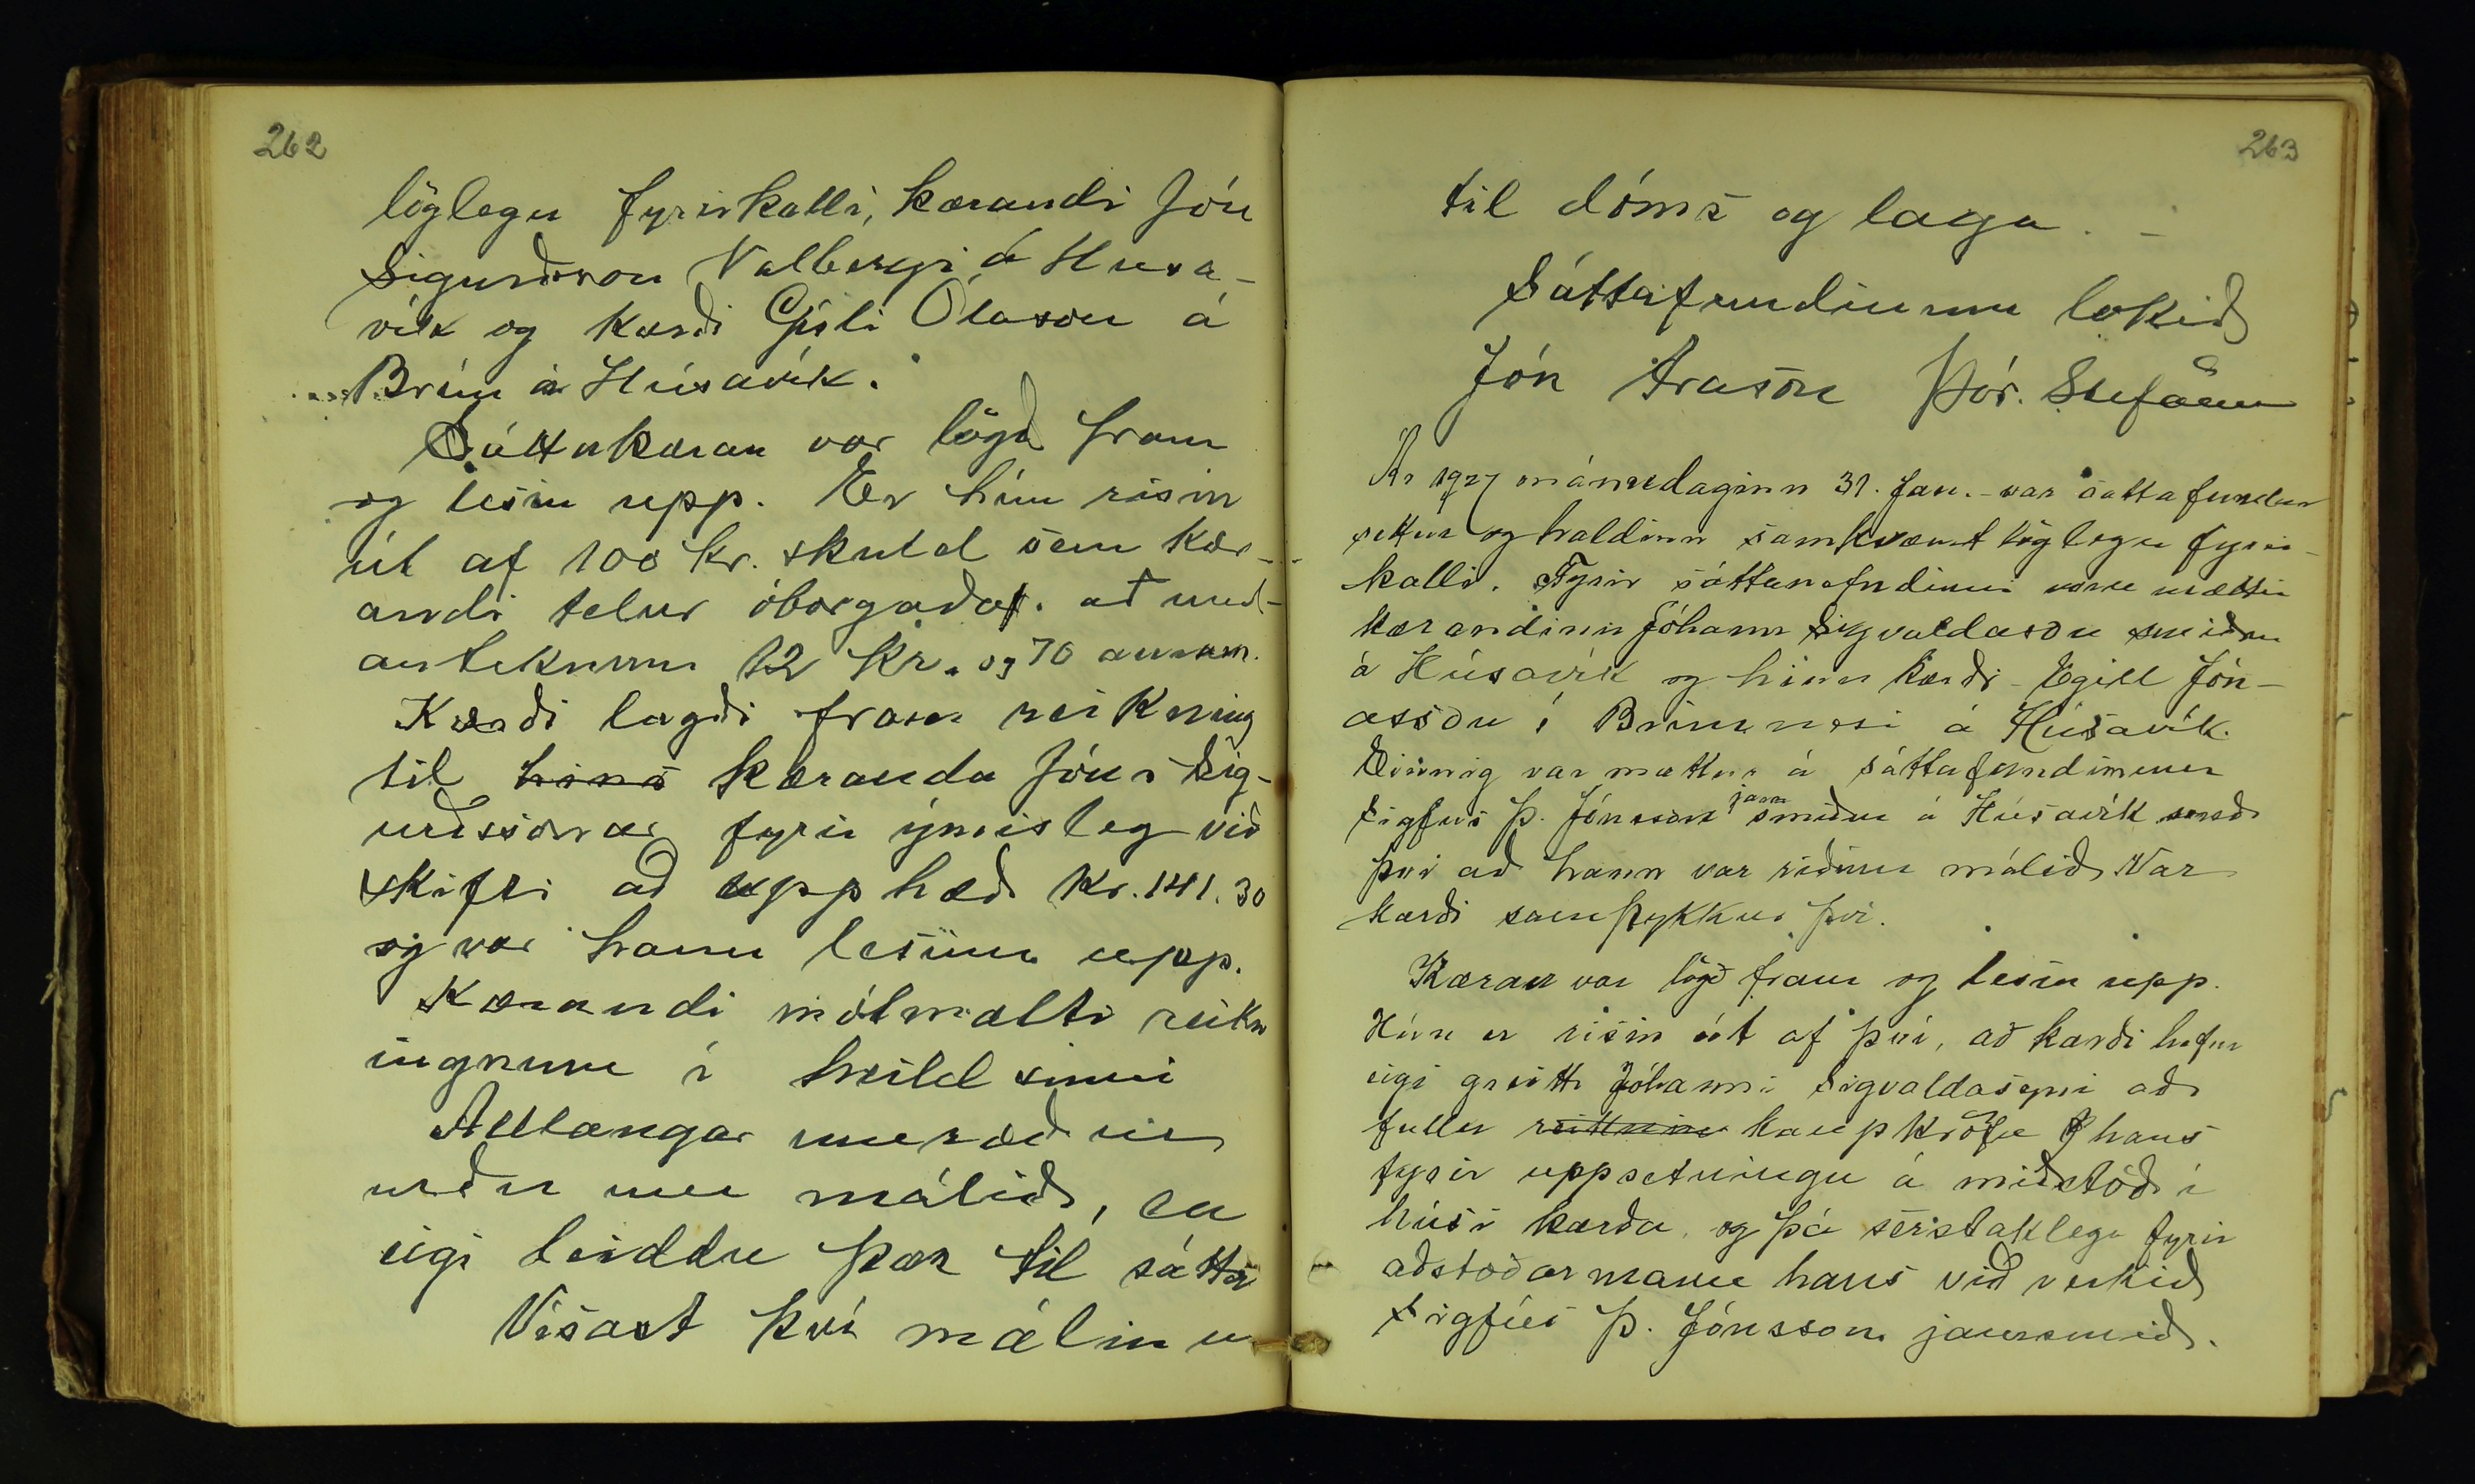 262
löglegu fyrirkalli, kærandi Jón
Sigurðsson Vallbergi á Husa-
vík og kærði Gísli Ólason á
Brún á Húsavík.
Sáttakæran var lögð fram
og lesin upp. Er hún risin
út af 100 kr. skuld sem kær-
andi telur óborgaða að und-
anteknum 12 kr. og 70 aurum.
Kærði lagði fram reikning
til hins kæranda Jóns Sig-
urðssonar fyrir ýmisleg við
skifti að upphæð kr. 141.30
og var hann lesinn upp.
Kærandi mótmælti reikn
ingnum í heild sinni
Alllangar umræður
urðu um málið, en
eigi leiddu þær til sátta
Vísast því málinu
263
til dóms og laga. -
Sáttafundinum lokið
Jón Arason Þór. Stefánss
Ár 1927 mánudaginn 31. Jan. - var sáttafundur
settur og haldinn samkvæmt löglegu fyrir-
kalli. Fyrir sáttanefndinni voru mættir
kærandinn Jóhann Sigvaldason smiður
á Húsavík og hinn kærði - Egill Jón-
asson í Brimnesi á Húsavík.
Einnig var mættur á sáttafundinum
Sigfús Þ. Jónsson jarnsmiður á Húsavík með
því að hann var riðinn málið Var
kærði samþykkur því.
Kæran var lögð fram og lesin upp.
Hún er risin út af því, að kærði hefur
eigi greitt Jóhanni Sigvaldasyni að
fullu kaupkröfu hans
fyrir uppsetningu á miðstöð í
húsi kærða, og þá sérstaklega fyrir
aðstoðarmann hans við verkið
Sigfús Þ. Jónsson jarnsmið.